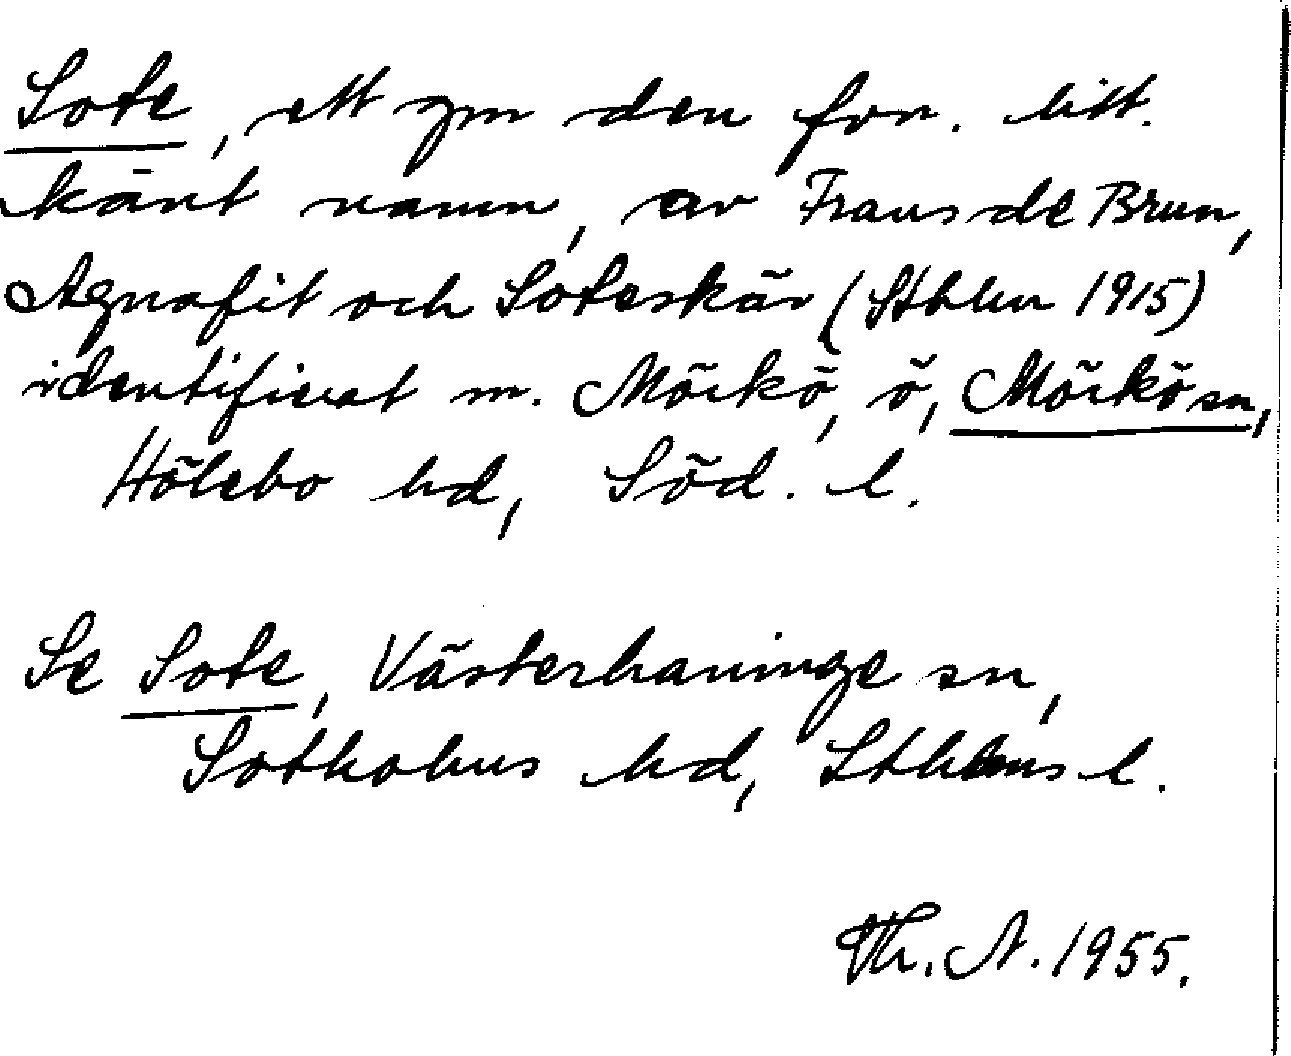 Sote, ett gm den fvn. litt.
känt namn, av Frans de Brun,
Agnafit och Soteskär (Sthlm 1915)
identifierat m. Mörkö, ö, Mörkö sn,
Hölebo hd, Söd. l.
Se Sote, Västerhaninge sn,
Sotholms hd, Sthlms l.
Th. A. 1955.